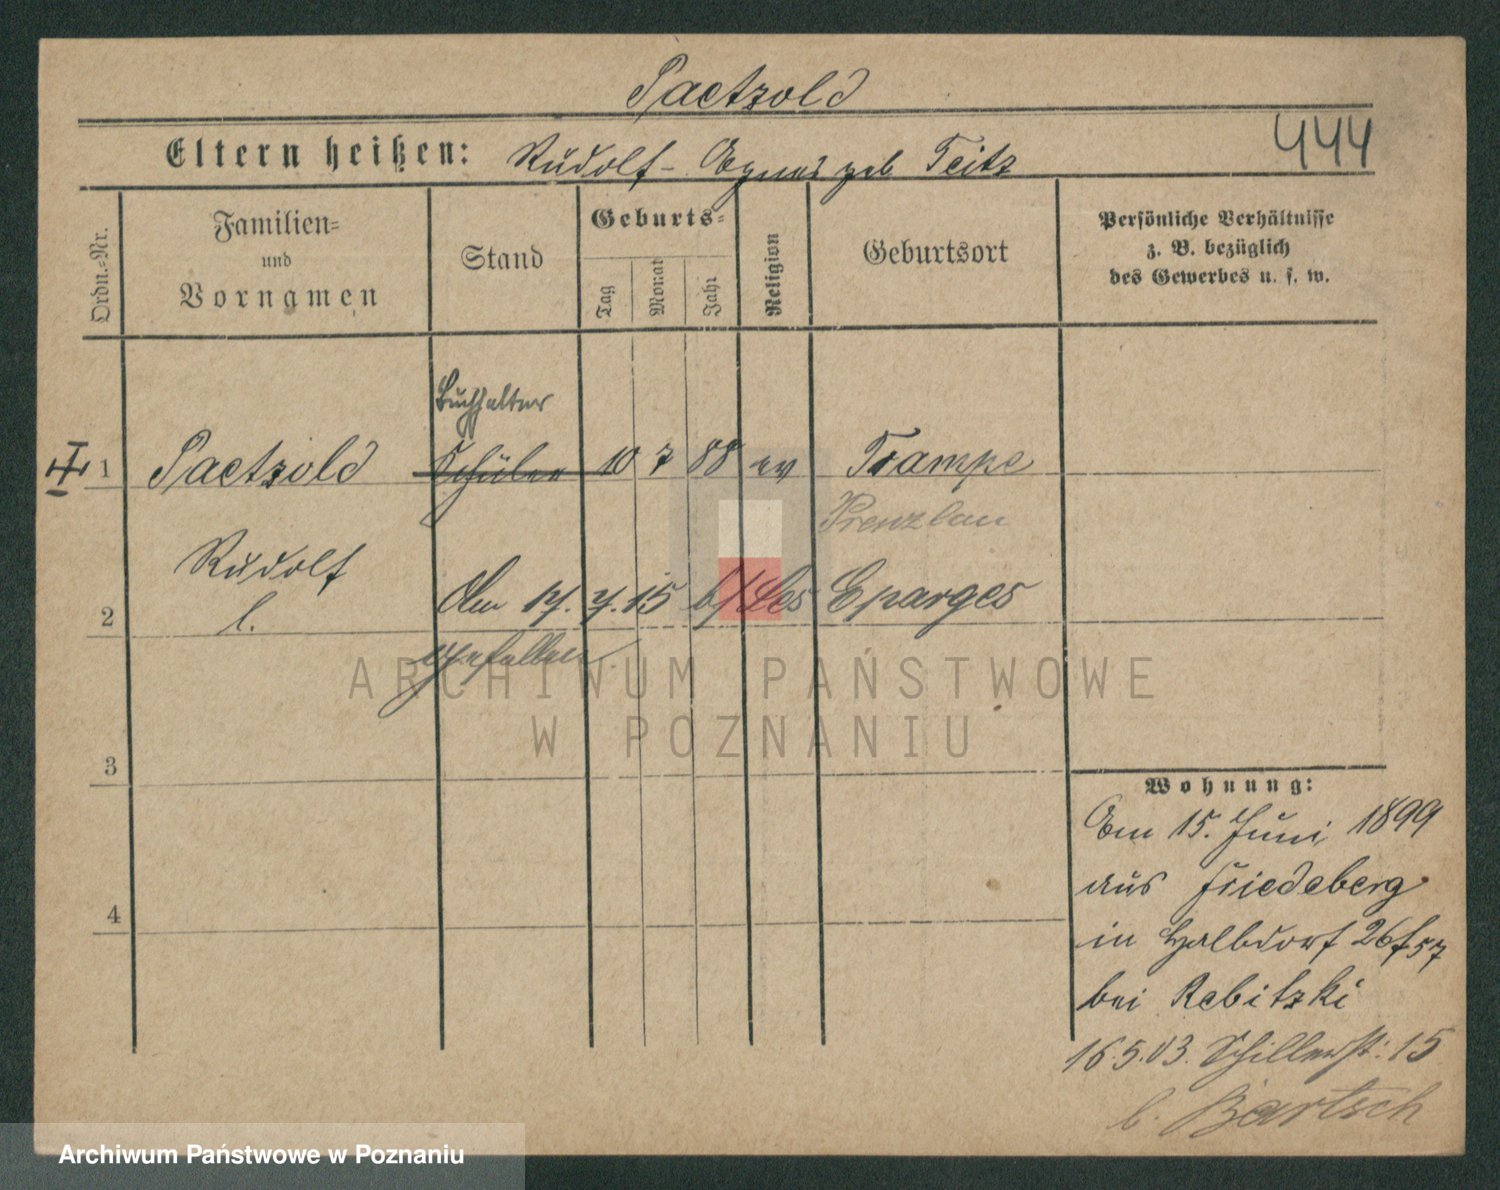 Paetzold
444
Eltern heißen: Rudolf - Agnes geb Teitz
Ordn.-Nr.
Familien-
und
Vornamen
Stand
Geburts-
Tag
Monat
Jahr
Religion
Geburtsort
Persönliche Verhältnisse
z. B. bezüglich
des Gewerbes u. s. w.
Buchhalter
1 Paetzold Schüler 10 7 88 ev Trampe
Prenzlau
Rudolf
l.
2 Am 17. 4. 15 b/ Les Eparges
gefallen.
3
4
Wohnung:
Am 15. Juni 1899
aus Friedeberg
in Halbdorf 26 f 57
bei Rebitzki
16.5.03. Schillerst: 15
b. Bartsch
ARCHIWUM PAŃSTWOWE
W POZNANIU
Archiwum Państwowe w Poznaniu